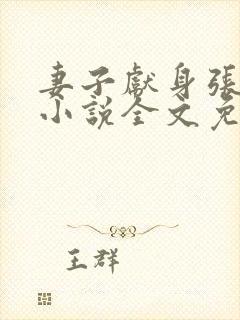 妻子獻身張
小說全文免
王群